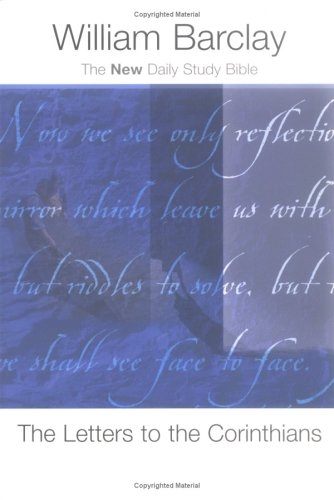 Copyrighted Material
William Barclay
The New Daily Study Bible
Now we see only reflectio
mirror which leave us with
but riddles to solve, but
we shall see face to face.
The Letters to the Corinthians
Copyrighted Material